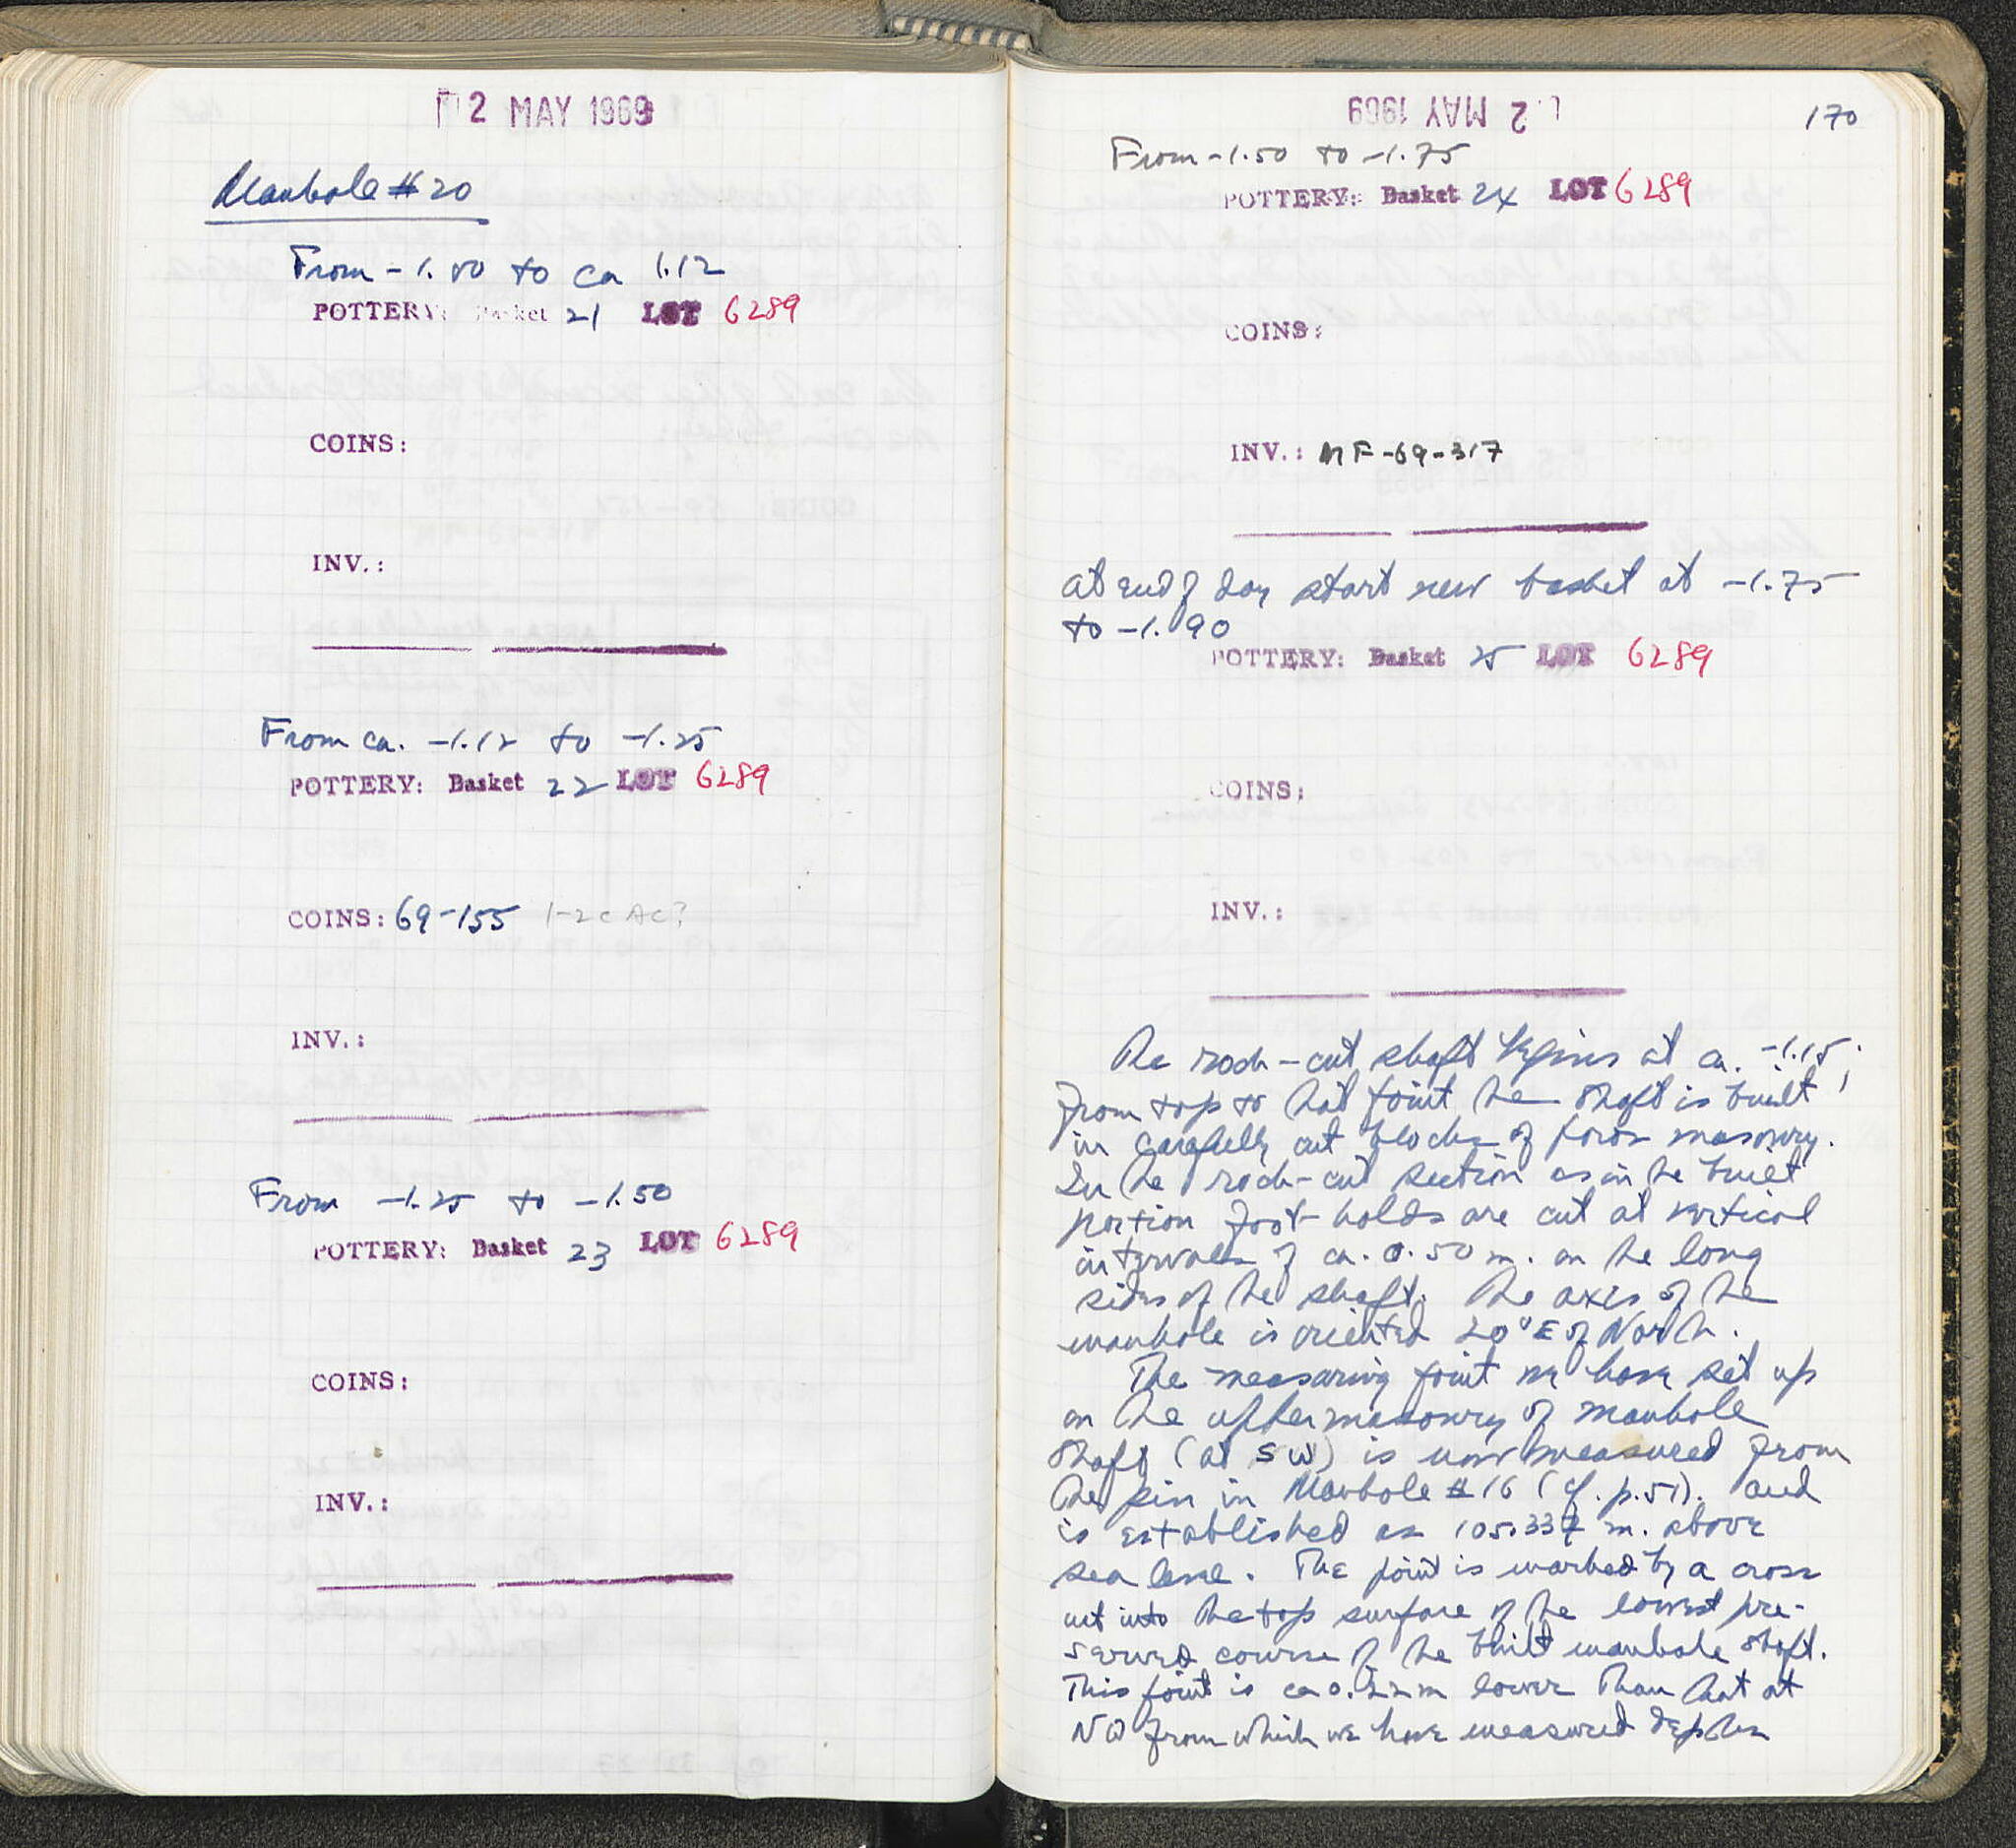 2 MAY 1969
Manhole # 20
From -1.00 to ca 1.12
POTTERY: Basket 21 LOT 6289
COINS:
INV.:
From ca. -1.12 to -1.25
POTTERY: Basket 22 LOT 6289
COINS: 69-155 1-2c AC?
INV.:
From -1.25 to -1.50
POTTERY: Basket 23 LOT 6289
COINS:
INV.:
2 MAY 1969
170
From -1.50 to -1.75
POTTERY: Basket 24 LOT 6289
COINS:
INV.: MF-69-317
At end of day start new basket at -1.75
to -1.90
POTTERY: Basket 25 LOT 6289
COINS:
INV.:
The rock-cut shaft begins at ca. -1.15;
from top to that point the shaft is built
in carefully cut blocks of poros masonry.
In the rock-cut section as in the built
portion foot-holds are cut at vertical
intervals of ca. 0.50 m. on the long
sides of the shaft. The axis of the
manhole is oriented 20° E of North.
The measuring point we have set up
on the upper masonry of manhole
shaft (at SW) is now measured from
the pin in Manhole # 16 (cf. p. 51). and
is established as 105.337 m. above
sea level. The point is marked by a cross
cut into the top surface of the lowest pre-
served course of the built manhole shaft.
This point is ca 0.22 m lower than that at
NW from which we have measured depths